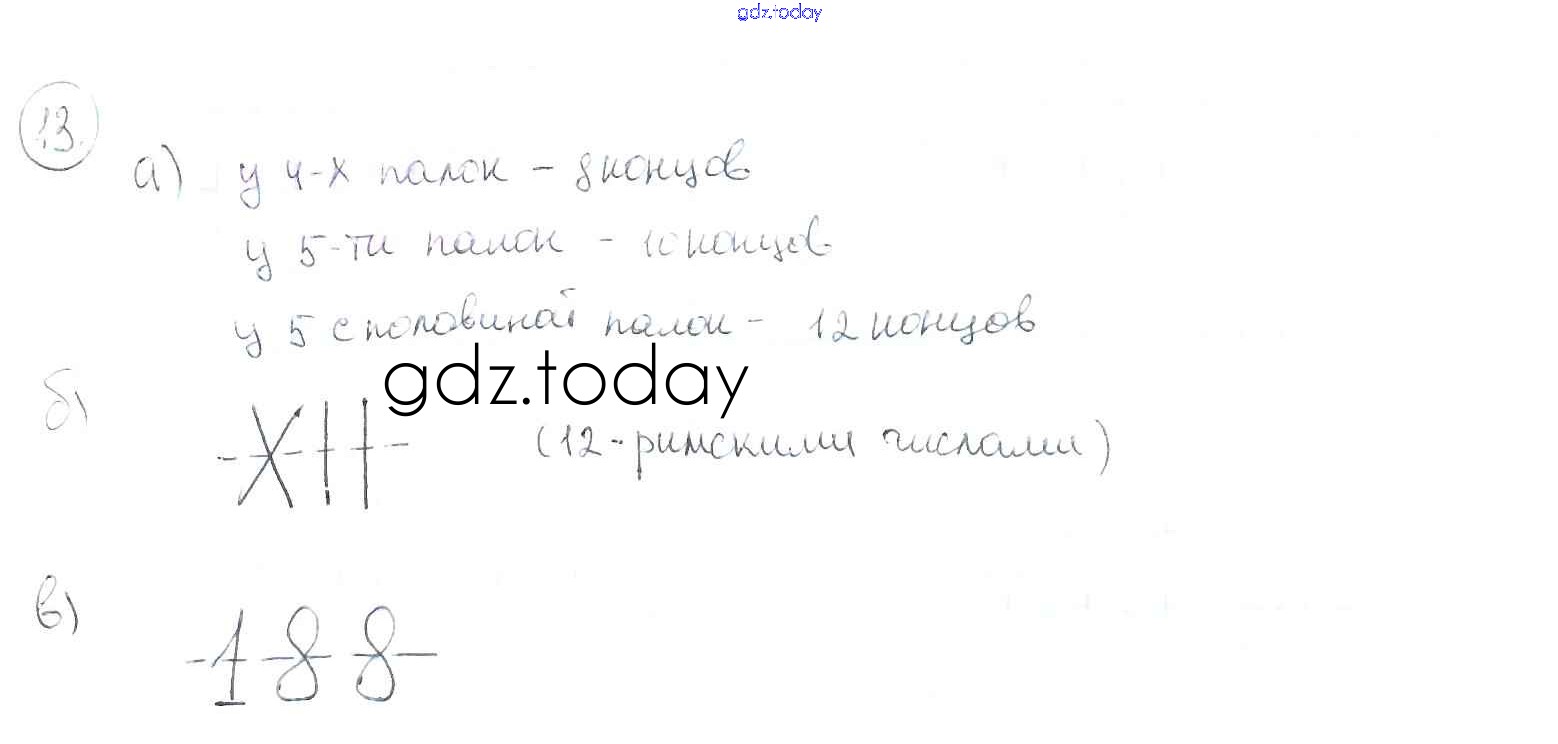 gdz.today
13.
а) у 4-х палок - 8 концов
у 5-ти палок - 10 концов
у 5 с половиной палок - 12 концов
gdz.today
б) XII (12 - римскими числами)
в) 188